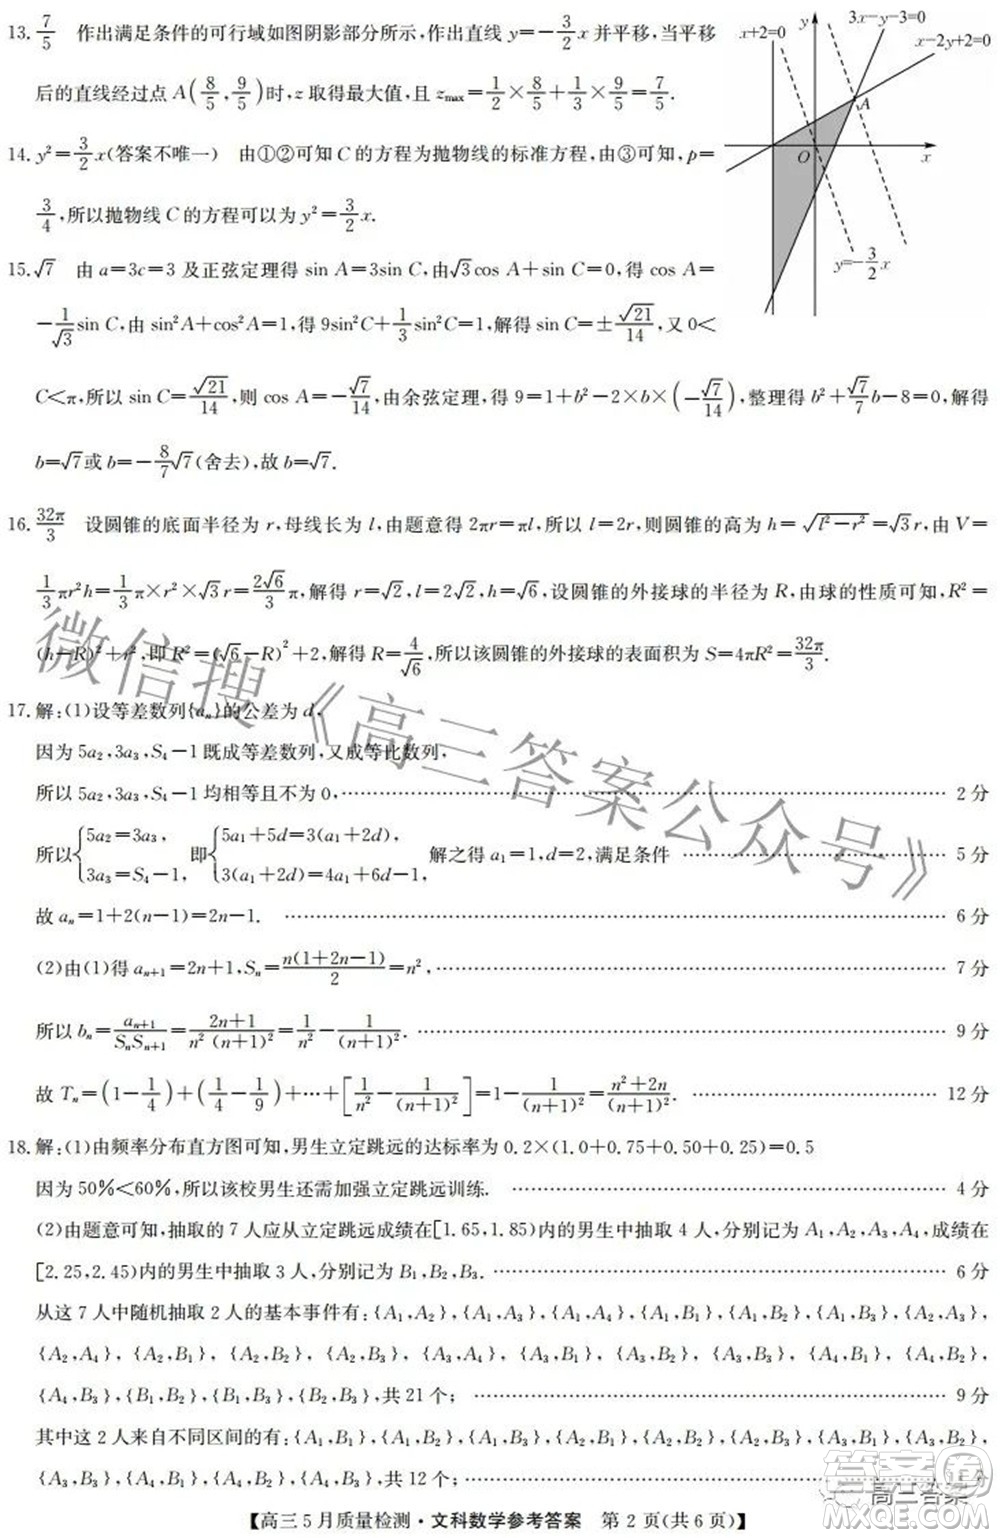 13. 7/5 作出满足条件的可行域如图阴影部分所示,作出直线 y=-3/2 x 并平移,当平移
后的直线经过点 A(8/5, 9/5)时,z 取得最大值,且 zmax=1/2×8/5+1/3×9/5=7/5.
x+2=0
y
3x-y-3=0
x-2y+2=0
A
O
x
y=-3/2 x
14. y²=3/2 x(答案不唯一) 由①②可知 C 的方程为抛物线的标准方程,由③可知,p=
3/4,所以抛物线 C 的方程可以为 y²=3/2 x.
15. √7 由 a=3c=3 及正弦定理得 sin A=3sin C,由√3cos A+sin C=0,得 cos A=
-1/√3 sin C,由 sin²A+cos²A=1,得 9sin²C+1/3 sin²C=1,解得 sin C=±√21/14,又 0<
C<π,所以 sin C=√21/14,则 cos A=-√7/14,由余弦定理,得 9=1+b²-2×b×(-√7/14),整理得 b²+√7/7 b-8=0,解得
b=√7或 b=-8/7√7(舍去),故 b=√7.
16. 32π/3 设圆锥的底面半径为 r,母线长为 l,由题意得 2πr=πl,所以 l=2r,则圆锥的高为 h=√(l²-r²)=√3r,由 V=
1/3 πr²h=1/3 π×r²×√3r=2√6/3 π,解得 r=√2,l=2√2,h=√6,设圆锥的外接球的半径为 R,由球的性质可知,R²=
(h-R)²+r²,即 R²=(√6-R)²+2,解得 R=4/√6,所以该圆锥的外接球的表面积为 S=4πR²=32π/3.
17.解:(1)设等差数列{aₙ}的公差为 d,
因为 5a₂,3a₃,S₄-1 既成等差数列,又成等比数列,
所以 5a₂,3a₃,S₄-1 均相等且不为 0,…… 2 分
所以{5a₂=3a₃, 3a₃=S₄-1, 即{5a₁+5d=3(a₁+2d), 3(a₁+2d)=4a₁+6d-1, 解之得 a₁=1,d=2,满足条件 …… 5 分
故 aₙ=1+2(n-1)=2n-1. …… 6 分
(2)由(1)得 aₙ₊₁=2n+1,Sₙ=n(1+2n-1)/2=n²,…… 7 分
所以 bₙ=aₙ₊₁/(SₙSₙ₊₁)=(2n+1)/(n²(n+1)²)=1/n²-1/(n+1)². …… 9 分
故 Tₙ=(1-1/4)+(1/4-1/9)+…+[1/n²-1/(n+1)²]=1-1/(n+1)²=(n²+2n)/(n+1)². …… 12 分
18.解:(1)由频率分布直方图可知,男生立定跳远的达标率为 0.2×(1.0+0.75+0.50+0.25)=0.5
因为 50%<60%,所以该校男生还需加强立定跳远训练. …… 4 分
(2)由题意可知,抽取的 7 人应从立定跳远成绩在[1.65,1.85)内的男生中抽取 4 人,分别记为 A₁,A₂,A₃,A₄,成绩在
[2.25,2.45)内的男生中抽取 3 人,分别记为 B₁,B₂,B₃. …… 6 分
从这 7 人中随机抽取 2 人的基本事件有:{A₁,A₂},{A₁,A₃},{A₁,A₄},{A₁,B₁},{A₁,B₂},{A₁,B₃},{A₂,A₃},
{A₂,A₄},{A₂,B₁},{A₂,B₂},{A₂,B₃},{A₃,A₄},{A₃,B₁},{A₃,B₂},{A₃,B₃},{A₄,B₁},{A₄,B₂},
{A₄,B₃},{B₁,B₂},{B₁,B₃},{B₂,B₃},共 21 个; …… 9 分
其中这 2 人来自不同区间的有:{A₁,B₁},{A₁,B₂},{A₁,B₃},{A₂,B₁},{A₂,B₂},{A₂,B₃},{A₃,B₁},{A₃,B₂},
{A₃,B₃},{A₄,B₁},{A₄,B₂},{A₄,B₃},共 12 个; …… 分
【高三 5 月质量检测·文科数学参考答案 第 2 页(共 6 页)】
微信搜《高三答案公众号》
答案圈
高三答案